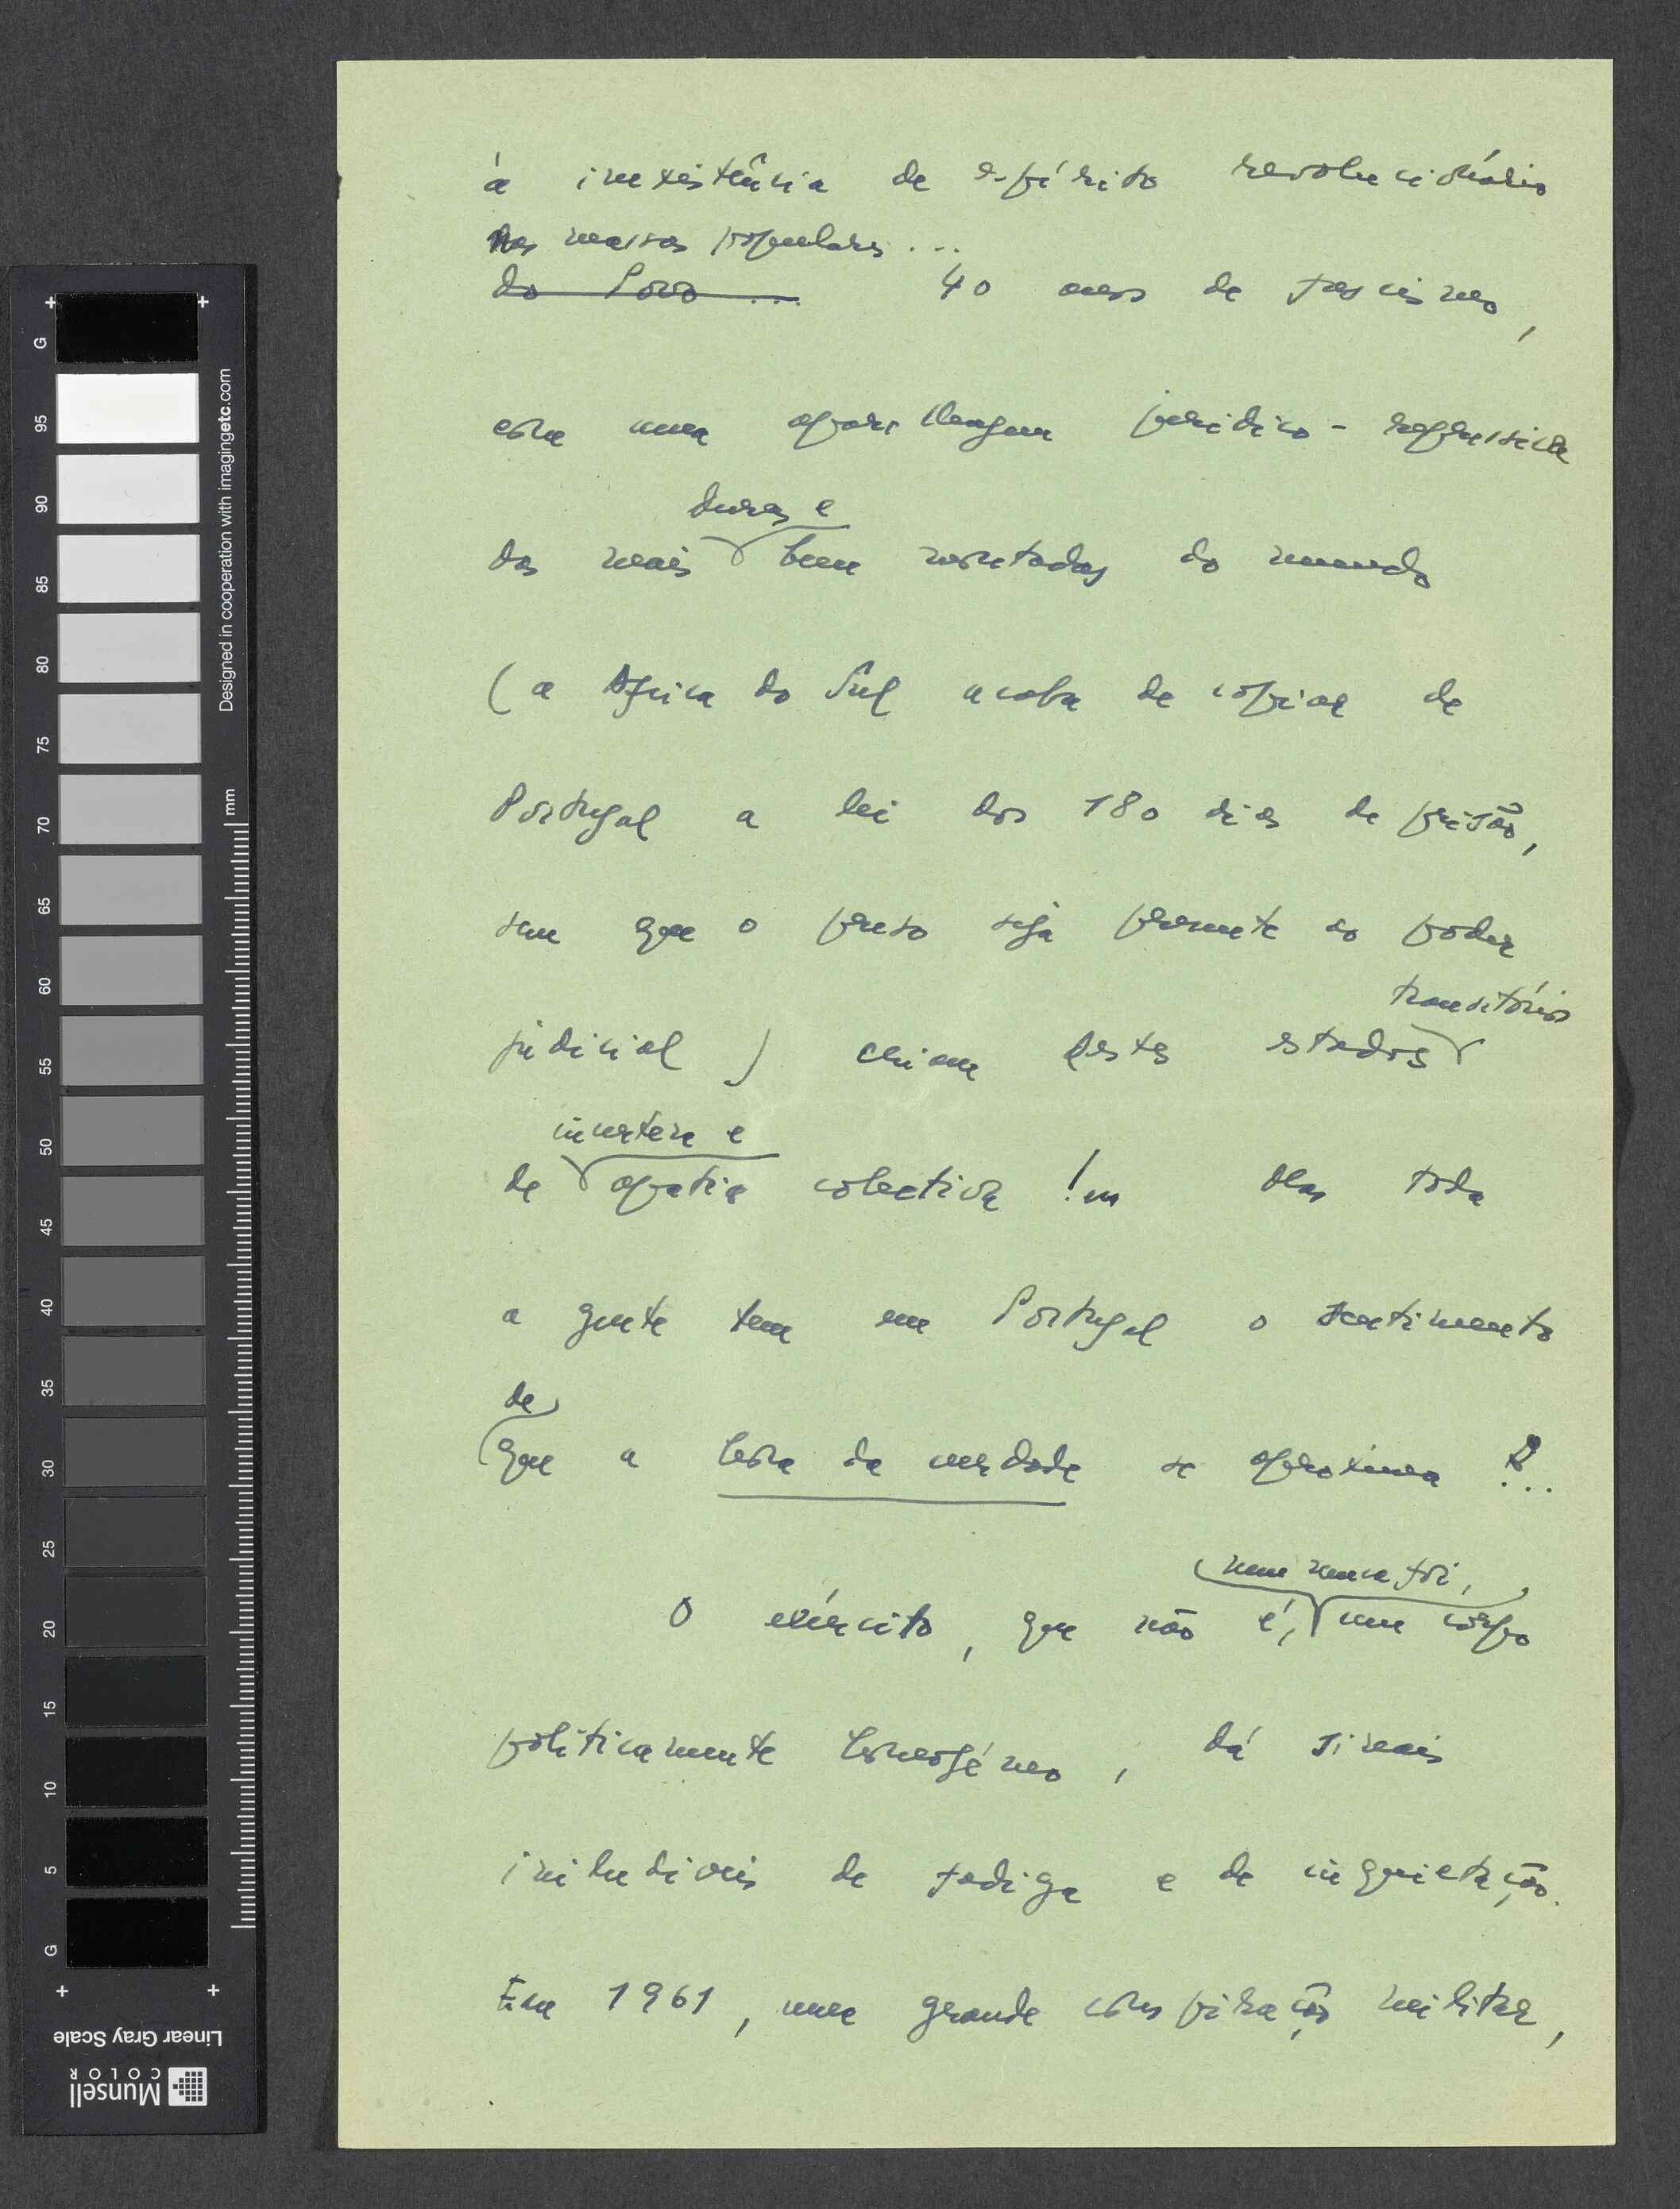 à inexistência de espírito revolucionário
nas massas populares...
do Povo ... 40 anos de fascismo,
com uma aparelhagem jurídico-repressiva
duras e
das mais bem montadas do mundo
(a Africa do Sul acaba de copiar de
Portugal a lei dos 180 dias de prisão,
sem que o preso seja presente ao poder
transitórios
judicial) criam destes estados
incerteza e
de apatia colectiva!... Mas toda
a gente tem em Portugal o sentimento
de
que a hora da verdade se aproxima ...
nem nunca foi,
O exército, que não é, um corpo
politicamente homogéneo, dá sinais
iniludíveis de fadiga e de inquietação.
Em 1961, uma grande conspiração militar,
G
95
90
85
80
75
70
65
60
55
50
45
40
35
30
25
20
15
10
5
G
Designed in cooperation with imagingetc.com
mm
Linear Gray Scale
Munsell
COLOR